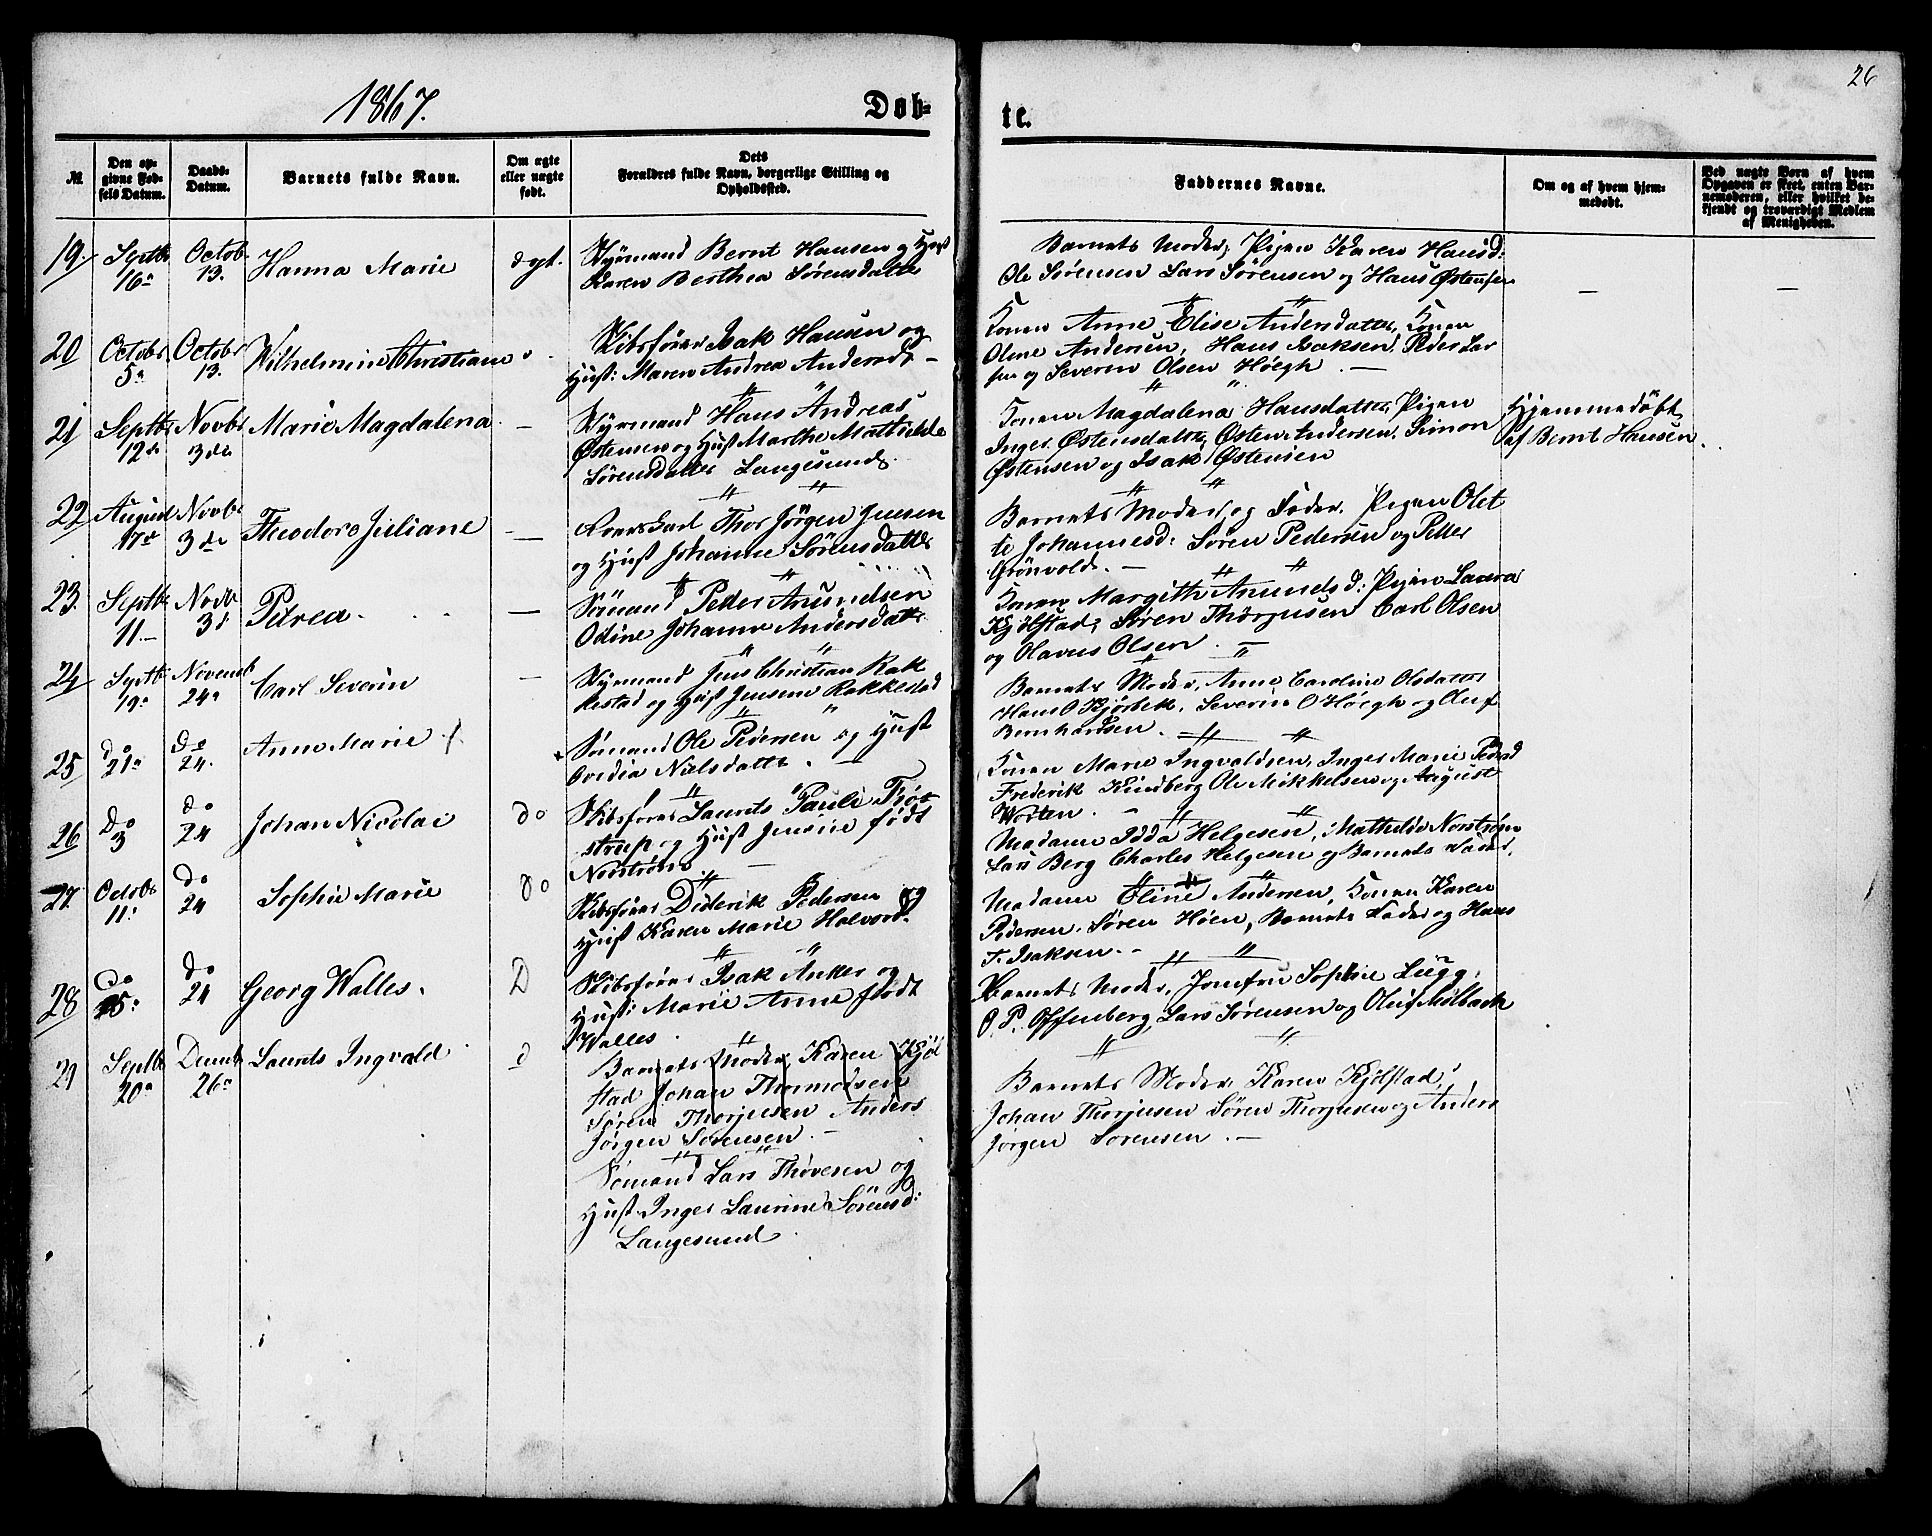 1867.
Døb-
te.
26
№
Den op-
givne Fød-
sels Datum.
Daabs-
Datum.
Barnets fulde Navn.
Om ægte
eller uægte
født.
Dets
Forældres fulde Navn, borgerlige Stilling og
Opholdssted.
Faddernes Navne.
Om og af hvem hjem-
medøbt.
Ved uægte Børn af hvem
Opgaven er skeet, enten Bar-
nemoderen, eller hvilket be-
kjendt og troværdigt Medlem
af Menigheden.
19 Septbr 16 Octob. 13. Hanna Marie ægt.
Styrmand Bernt Hansen og Hust
Karen Berthea Sørensdatter
Barnets Moder, Pigen Karen Hansd:
Ole Sørensen Lars Sørensen og Hans Østensen
20 Octobr 5 Octobr 13. Wilhelmine Christiane
Skibsfører Isak Hansen og
Hust: Maren Andrea Andersdr —
Konen Anne Elise Andersdatter, Konen
Oline Andersen, Hans Isaksen, Peder Lar
sen og Severin Olsen Høegh. —
21 Septbr 12 Novbr 3de Marie Magdalena —
Styrmand Hans Andreas
Østensen og Hust Marthe Mathilde
Sørensdatter Langesund
Konen Magdalena Hansdatter, Pigen
Inger Østensdatter, Østen Andersen, Simon
Østensen og Isak Østensen
Hjemmedøbt
af Bernt Hansen.
22 August 17 Novbr 3de Theodore Juliane —
Thor Jørgen Jensen
og Hust Johanne Sørensdatter
Barnets Moder og Fader, Pigen Olet
te Johannesd: Søren Pedersen og Petter
Grønvold. —
23. Septbr 11 — Novbr 3 Petrea —
Sømand Peder Anundsen
Odine Johanne Andersdatter
Konen Margith Anundsd: Pigen Laura
Kjølstad, Søren Thorjusen Carl Olsen
og Olavus Olsen. —
24 Septbr 19 Novemb 24 Carl Severin —
Styrmand Jens Christian Rak
kestad og Hust Jensine Rakkestad
Barnets Moder, Anne Caroline Olsdatter
Hans O Kjørbek, Severin O Høegh og Oluf
Bernhardsen.
25 do 21 do 24. Anne Marie
Sømand Ole Pedersen og Hust
Ovedia Nielsdatter. —
Konen Marie Ingvaldsen, Inger Marie Pedersd
Frederik Lindberg Ole Mikkelsen og August
Worten. —
26 Do 3 do 24 Johan Nicolai do
Skibsfører Laurits Pauli Trøt
strup og Hust Jensine født
Nordstrøm —
Madame Idda Helgesen, Mathilde Norstrøm
Lars Berg Charles Helgesen og Barnets Fader.
27. Octobr 11 do 24 Sophie Marie do
Skibsfører Diderik Pedersen og
Hust Karen Marie Halvord.
Madame Eline Andersen, Konen Karen
Pedersen, Søren Høen, Barnets Fader og Hans
T. Isaksen. —
28 Do do 24 Georg Walles. D
Skibsfører Isak Anker og
Hust: Marie Anne født
Walles.
Barnets Moder, Jomfru Sophie Lugg,
O. P. Offenberg, Lars Sørensen og Oluf Mølbach
29 Septbr 20 Decmb 26 Laurits Ingvald d
Barnets Moder Karen Kjøl
stad Johan Thormodsen
Søren Thorjusen Anders
Jørgen Sørensen. —
Sømand Lars Thovesen og
Hust Inger Laurine Sørensd:
Langesund
Barnets Moder, Karen Kjølstad,
Johan Thorjusen Søren Thorjusen og Anders
Jørgen Sørensen. —